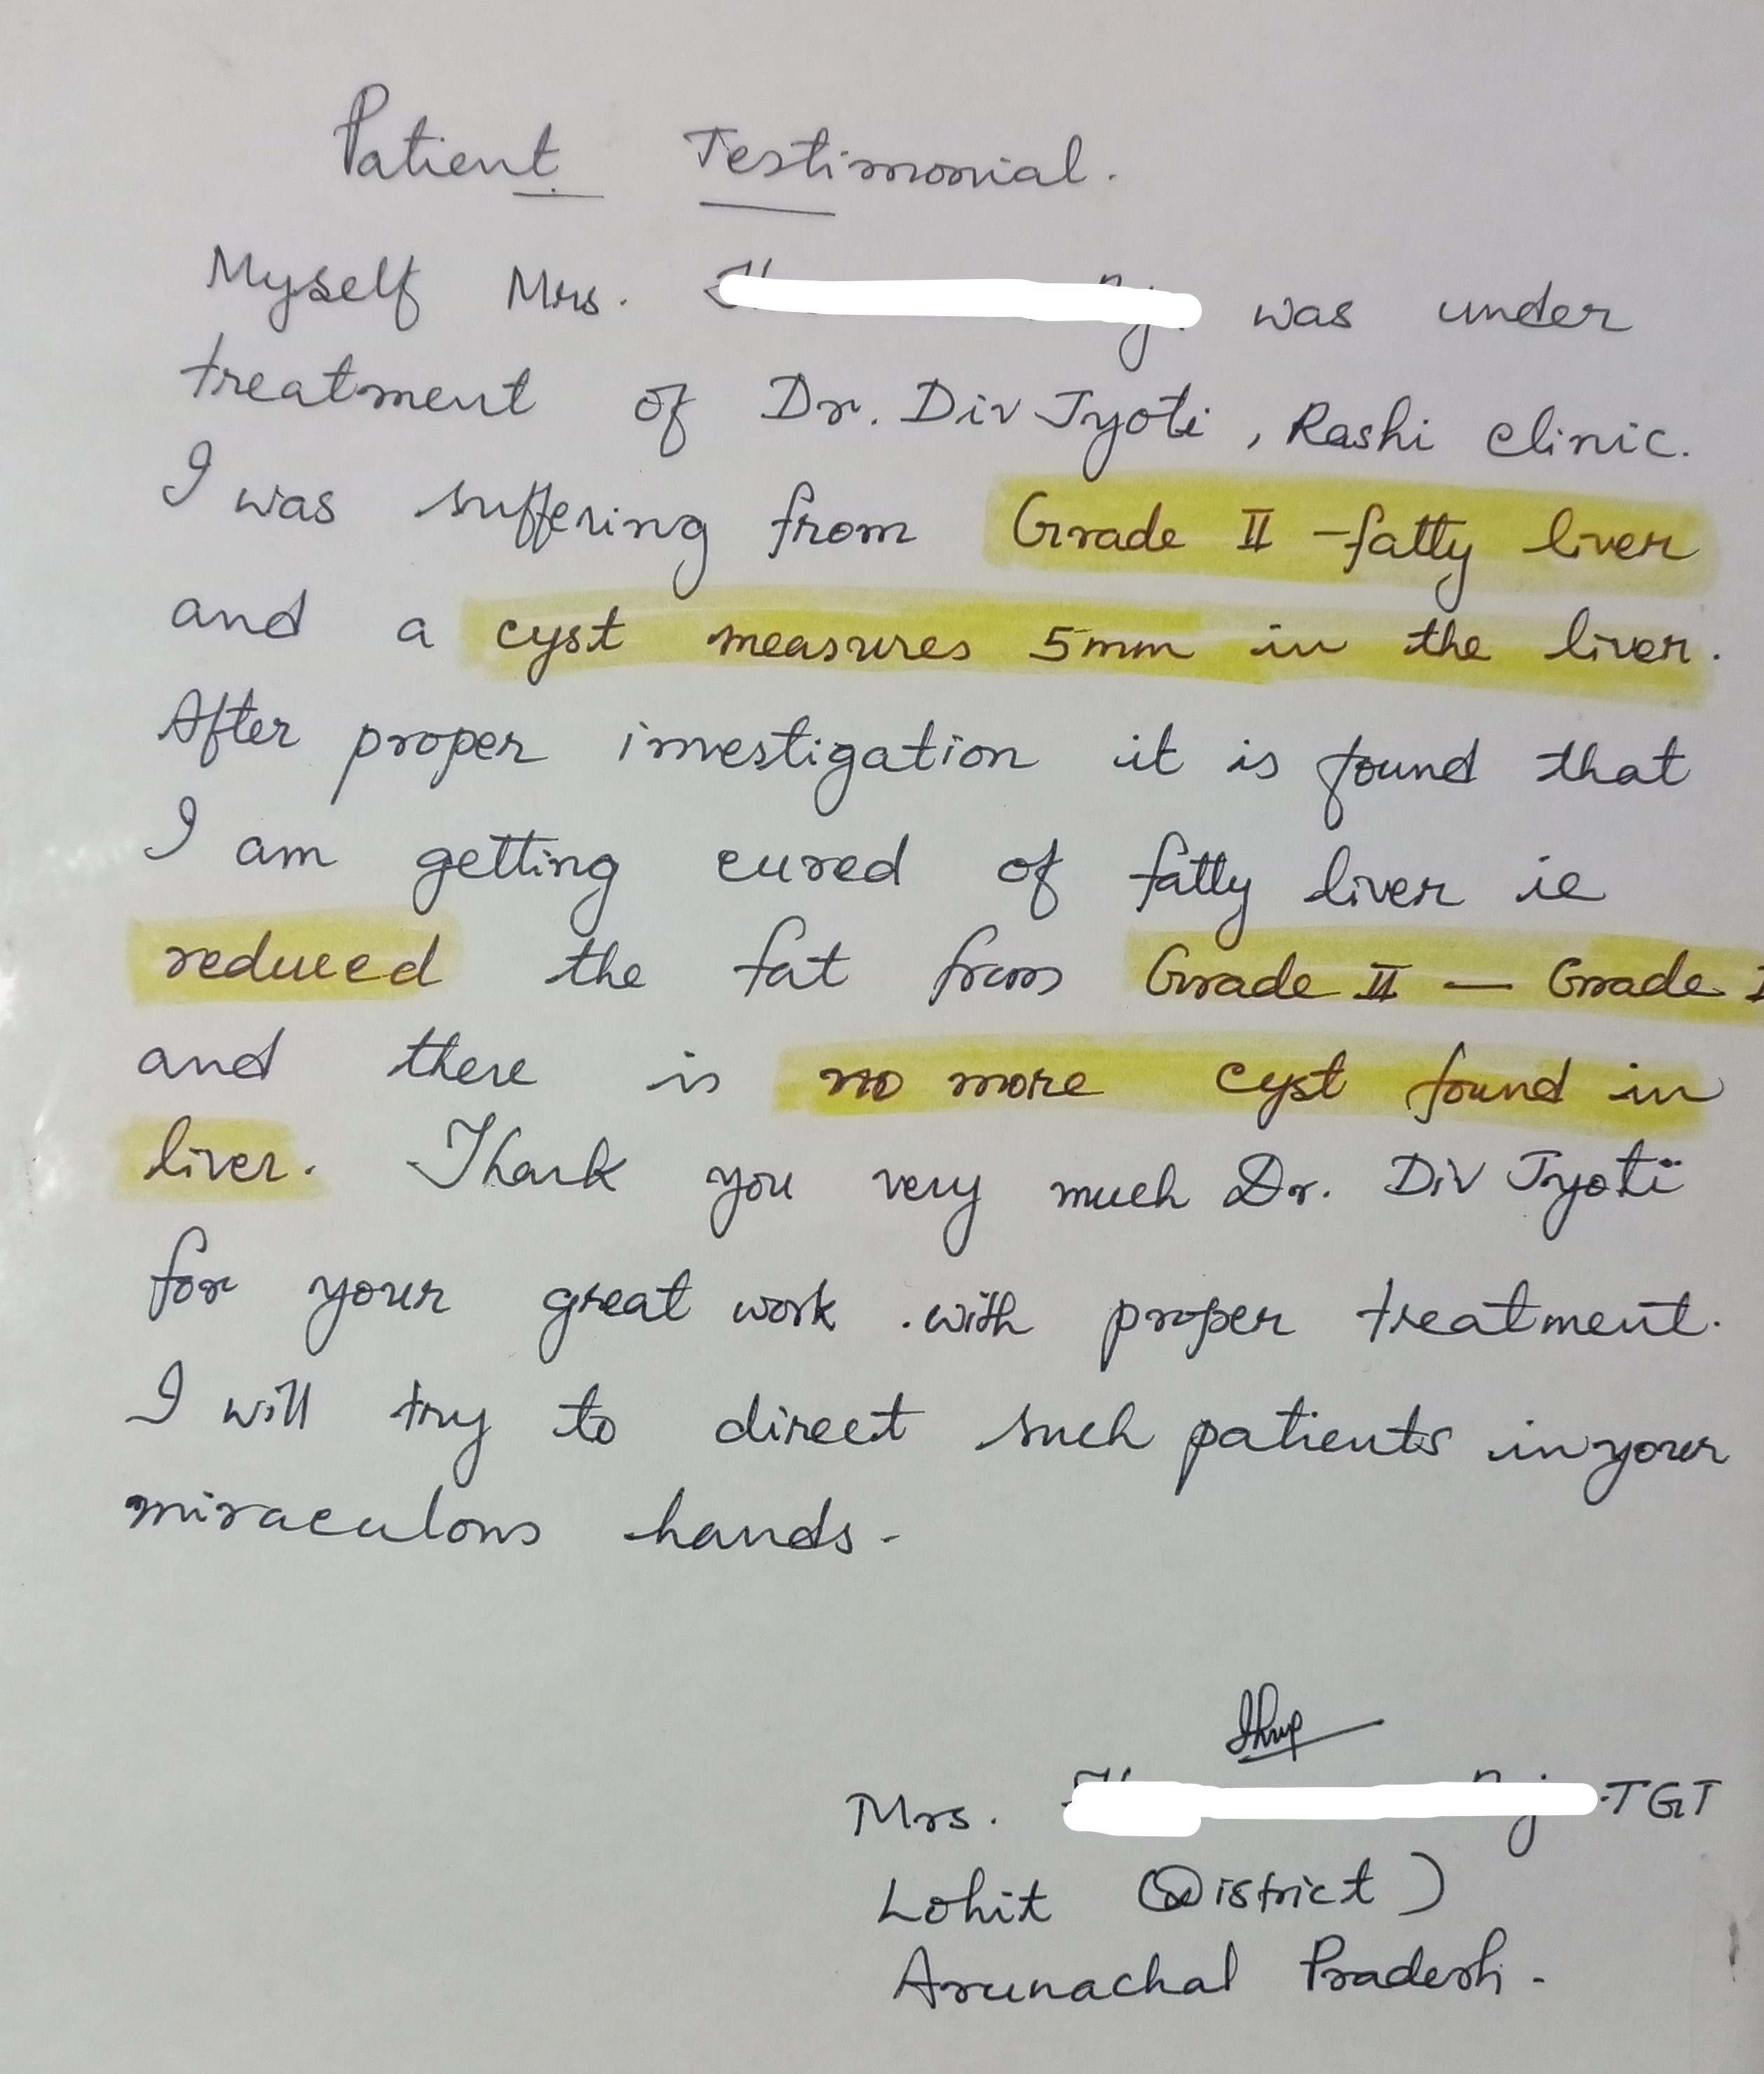 Patient Testimonial.
Myself Mrs. was under
treatment of Dr. Div Jyoti, Rashi clinic.
I was suffering from Grade II - fatty liver
and a cyst measures 5mm in the liver.
After proper investigation it is found that
I am getting cured of fatty liver ie
reduced the fat from Grade II — Grade I
and there is no more cyst found in
liver. Thank you very much Dr. Div Jyoti
for your great work .with proper treatment.
I will try to direct such patients in your
miraculous hands.
Mrs. TGT
Lohit (District)
Arunachal Pradesh.